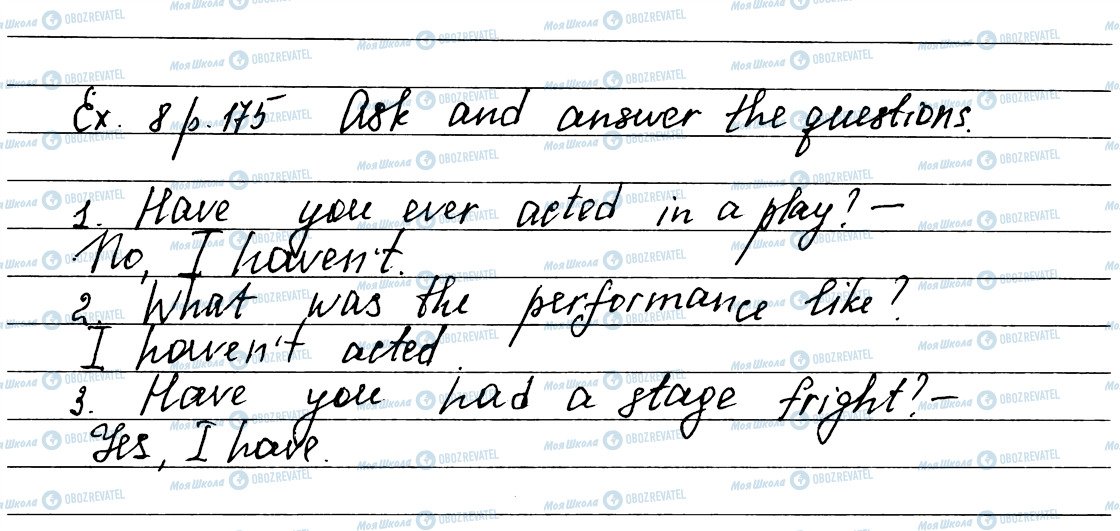 Ex. 8 p. 175 Ask and answer the questions.
1. Have you ever acted in a play? –
No, I haven't.
2. What was the performance like?
I haven't acted.
3. Have you had a stage fright? –
Yes, I have.